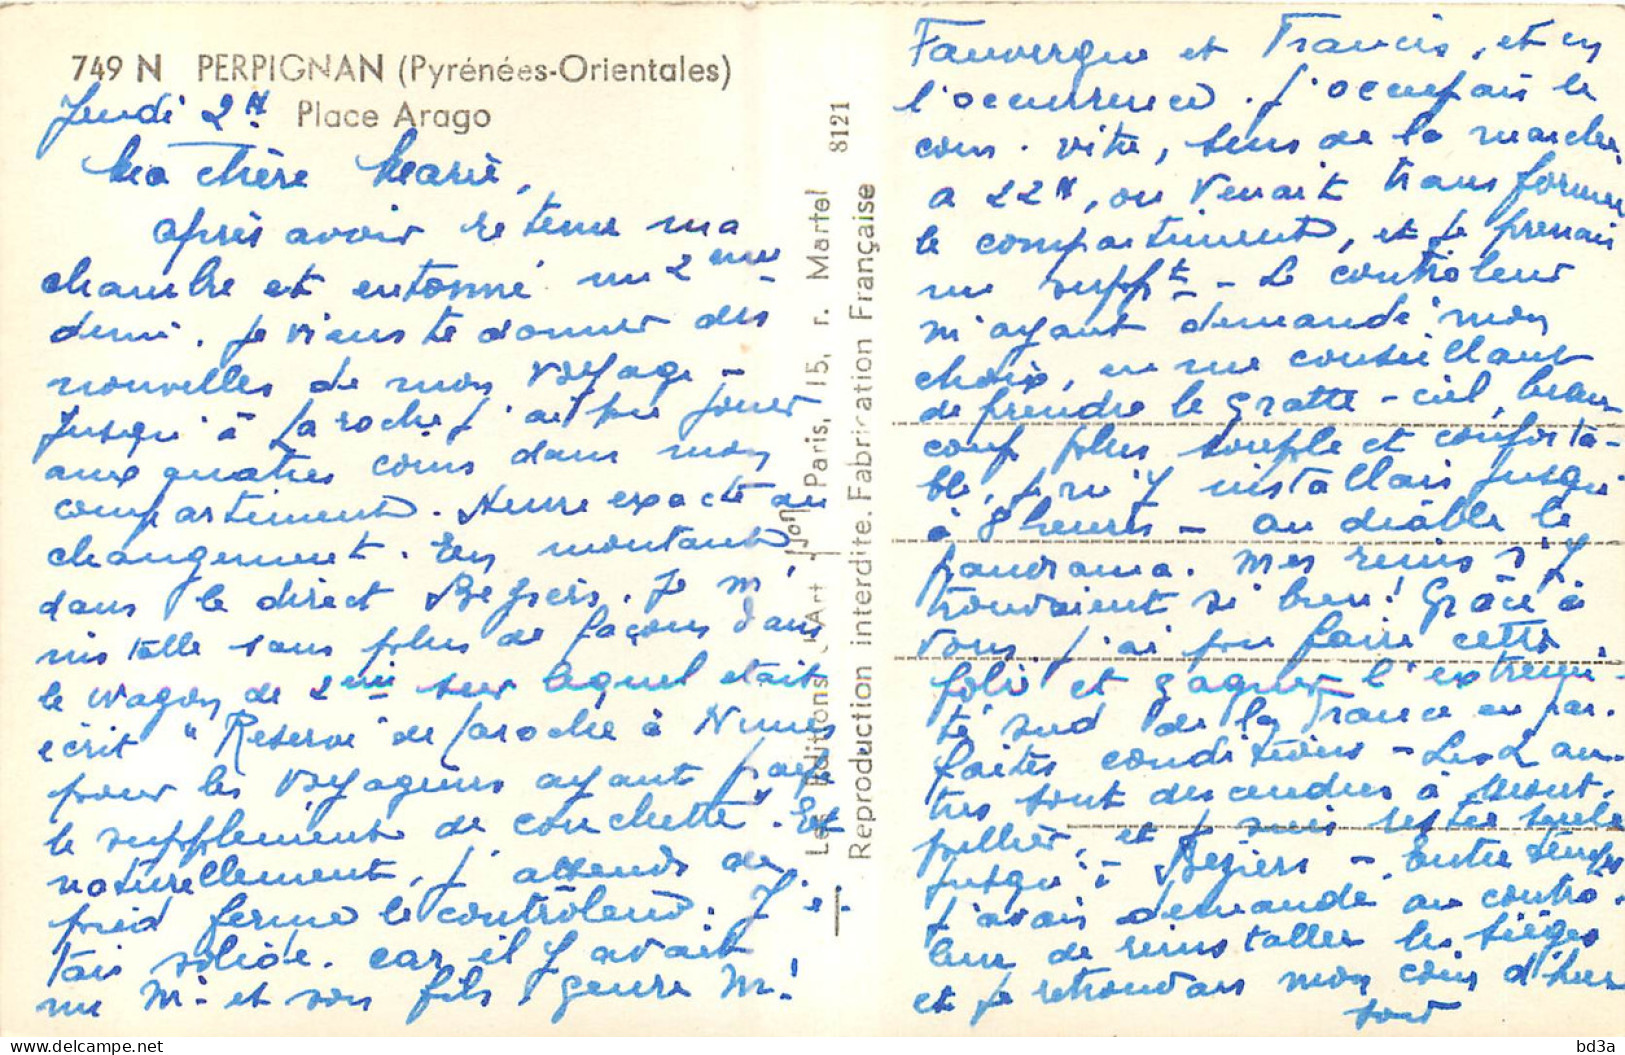 749 N PERPIGNAN (Pyrénées-Orientales)
Place Arago
Jeudi 2 H
Ma chère Marie,
après avoir retenu ma
chambre et entonné un 2ème
demi, je viens te donner des
nouvelles de mon voyage -
Jusqu'à Laroche j'ai pu jouer
aux quatres coins dans mon
compartiment. Heure exacte au
changement. En montant
dans le direct Beziers. Je m'
installe sans plus de façons dans
le wagon de 2ème sur lequel etait
écrit "Reservé de Laroche à Nimes
pour les voyageurs ayant payé
le supplement de couchette". Et
naturellement, j'attends de
pied ferme le contrôleur. J'é-
tais solide. car il y avait
un Mr et son fils, genre Mr
Les Editions d'Art Yvon Paris, 15, r. Martel 8121
Reproduction interdite. Fabrication Française
Fauvergue et Francis, et en
l'occurrence. j'occupais le
coin. vitre, sens de la marche
a 22H, on venait transformer
le compartiment, et je prenais
un suppt - Le contrôleur
m'ayant demandé mon
choix, en me conseillant
de prendre le gratte-ciel, beau-
coup plus souple et conforta-
ble, je m'y installais jusqu'
à 8 heures - au diable le
panorama. Mes reins s'y
trouvaient si bien! Grâce à
vous, j'ai pu faire cette
folie et gagner l'extremi-
té sud de la France en par-
faites conditions - Les 2 au-
tres sont descendus à Mont-
pellier, et je suis restée seule
jusqu'à Beziers - Entre temps
j'avais demandé au contrô-
leur de reinstaller les sièges
et je retrouvais mon coin d'hier
soir